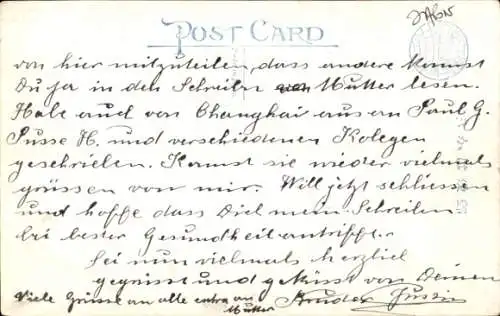 POST CARD
von hier mitzuteilen, dass andere kannst
Du ja in den Schreiben von Mutter lesen.
Habe auch von Changhai aus an Paul G.
Susse H. und verschiedenen Kolegen
geschrieben. Kannst sie wieder vielmals
grüssen von mir. Will jetzt schliessen
und hoffe dass Dich mein Schreiben
bei bester Gesundheit antriffe.
Sei nun vielmals herzlich
gegrüsst und geküsst von Deinen
Viele Grüsse an alle extra an Bruder
Mutter